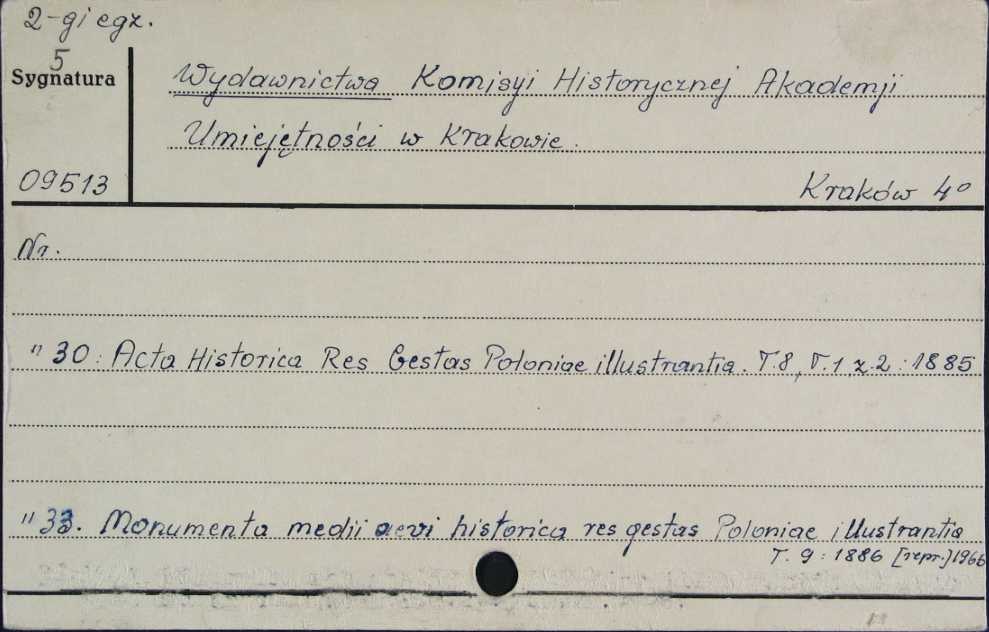 2-gi egz.
5
Sygnatura
Wydawnictwa Komisyi Historycznej Akademji
Umiejętności w Krakowie.
09513
Kraków 4º
Nr.
" 30: Acta Historica Res Gestas Poloniae illustrantia. T.8, T.1 z.2: 1885
" 33. Monumenta medii aevi historica res gestas Poloniae illustrantia
T. 9: 1886 [repr.] 1966